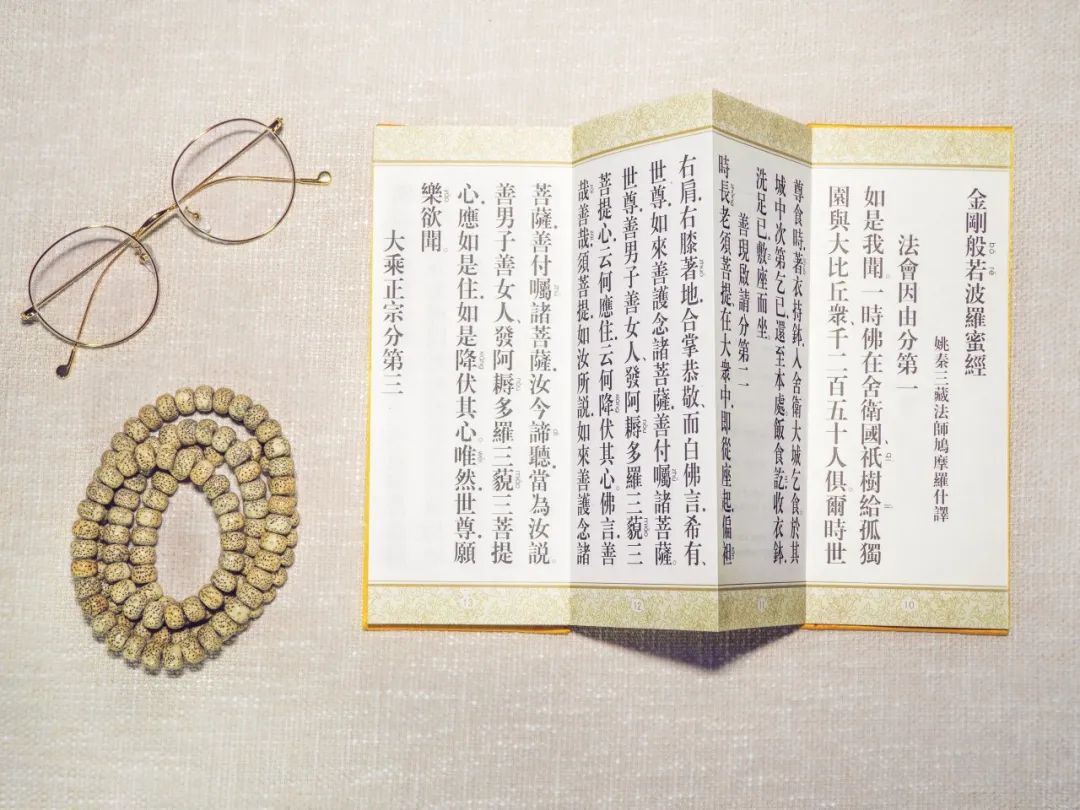 金剛般若波羅蜜經
姚秦三藏法師鳩摩羅什譯
法會因由分第一
如是我聞。一時佛在舍衛國、祇樹給孤獨
園與大比丘衆、千二百五十人俱。爾時世
10
尊食時、著衣持鉢、入舍衛大城乞食。於其
城中次第乞已、還至本處。飯食訖、收衣鉢、
洗足已、敷座而坐。
善現啟請分第二
時長老須菩提、在大衆中、即從座起、偏袒
11
右肩、右膝著地、合掌恭敬、而白佛言。希有、
世尊、如來善護念諸菩薩、善付囑諸菩薩。
世尊、善男子善女人、發阿耨多羅三藐三
菩提心、云何應住、云何降伏其心。佛言、善
哉善哉。須菩提、如汝所說、如來善護念諸
12
菩薩、善付囑諸菩薩。汝今諦聽、當為汝說。
善男子善女人、發阿耨多羅三藐三菩提
心、應如是住、如是降伏其心。唯然世尊、願
樂欲聞。
大乘正宗分第三
13